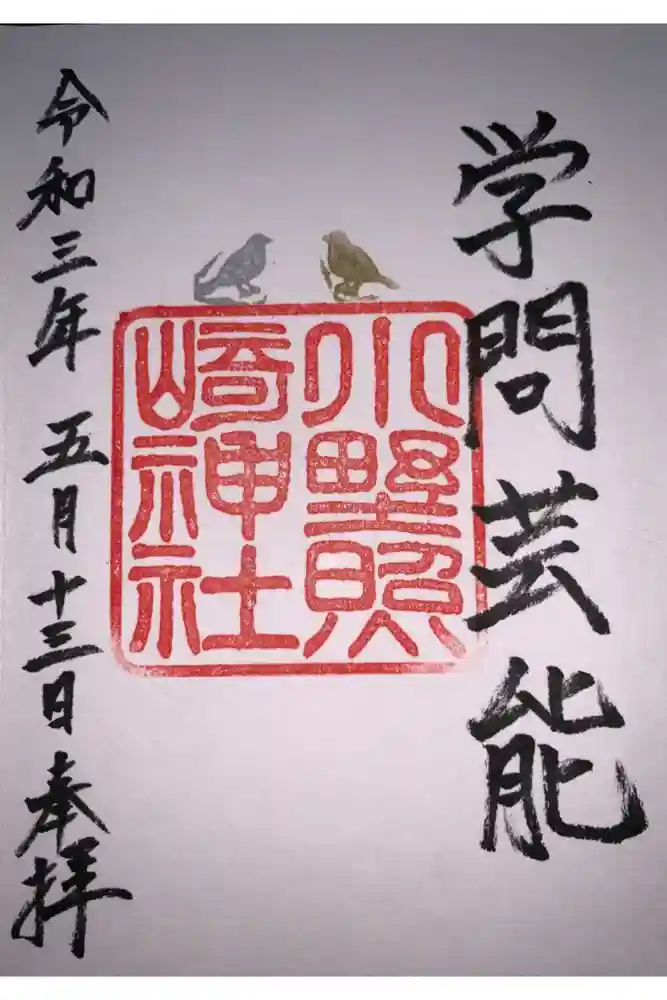 学問芸能
小野照
崎神社
令和三年 五月十三日 奉拝